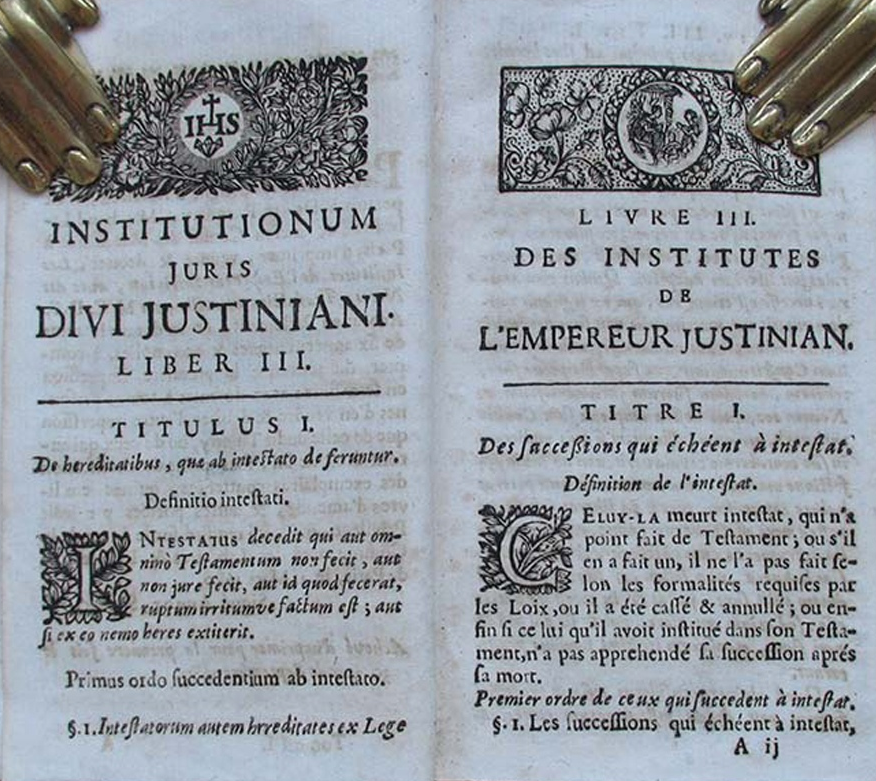 IHS
INSTITUTIONUM
JURIS
DIVI JUSTINIANI.
LIBER III.
TITULUS I.
De hereditatibus, quæ ab intestato deferuntur.
Definitio intestati.
INTESTATUS decedit qui aut om-
nino Testamentum non fecit, aut
non jure fecit, aut id quod fecerat,
ruptum irritumve factum est; aut
si ex eo nemo heres extiterit.
Primus ordo succedentium ab intestato.
§. 1. Intestatorum autem hrreditates ex Lege
LIVRE III.
DES INSTITUTES
DE
L'EMPEREUR JUSTINIAN.
TITRE I.
Des successions qui échéent à intestat.
Définition de l'intestat.
CELUY-LA meurt intestat, qui n'a
point fait de Testament; ou s'il
en a fait un, il ne l'a pas fait se-
lon les formalités requises par
les Loix, ou il a été cassé & annullé; ou en-
fin si celui qu'il avoit institué dans son Testa-
ment, n'a pas apprehendé sa succession aprés
sa mort.
Premier ordre de ceux qui succedent à intestat.
§. 1. Les successions qui échéent à intestat,
A ij